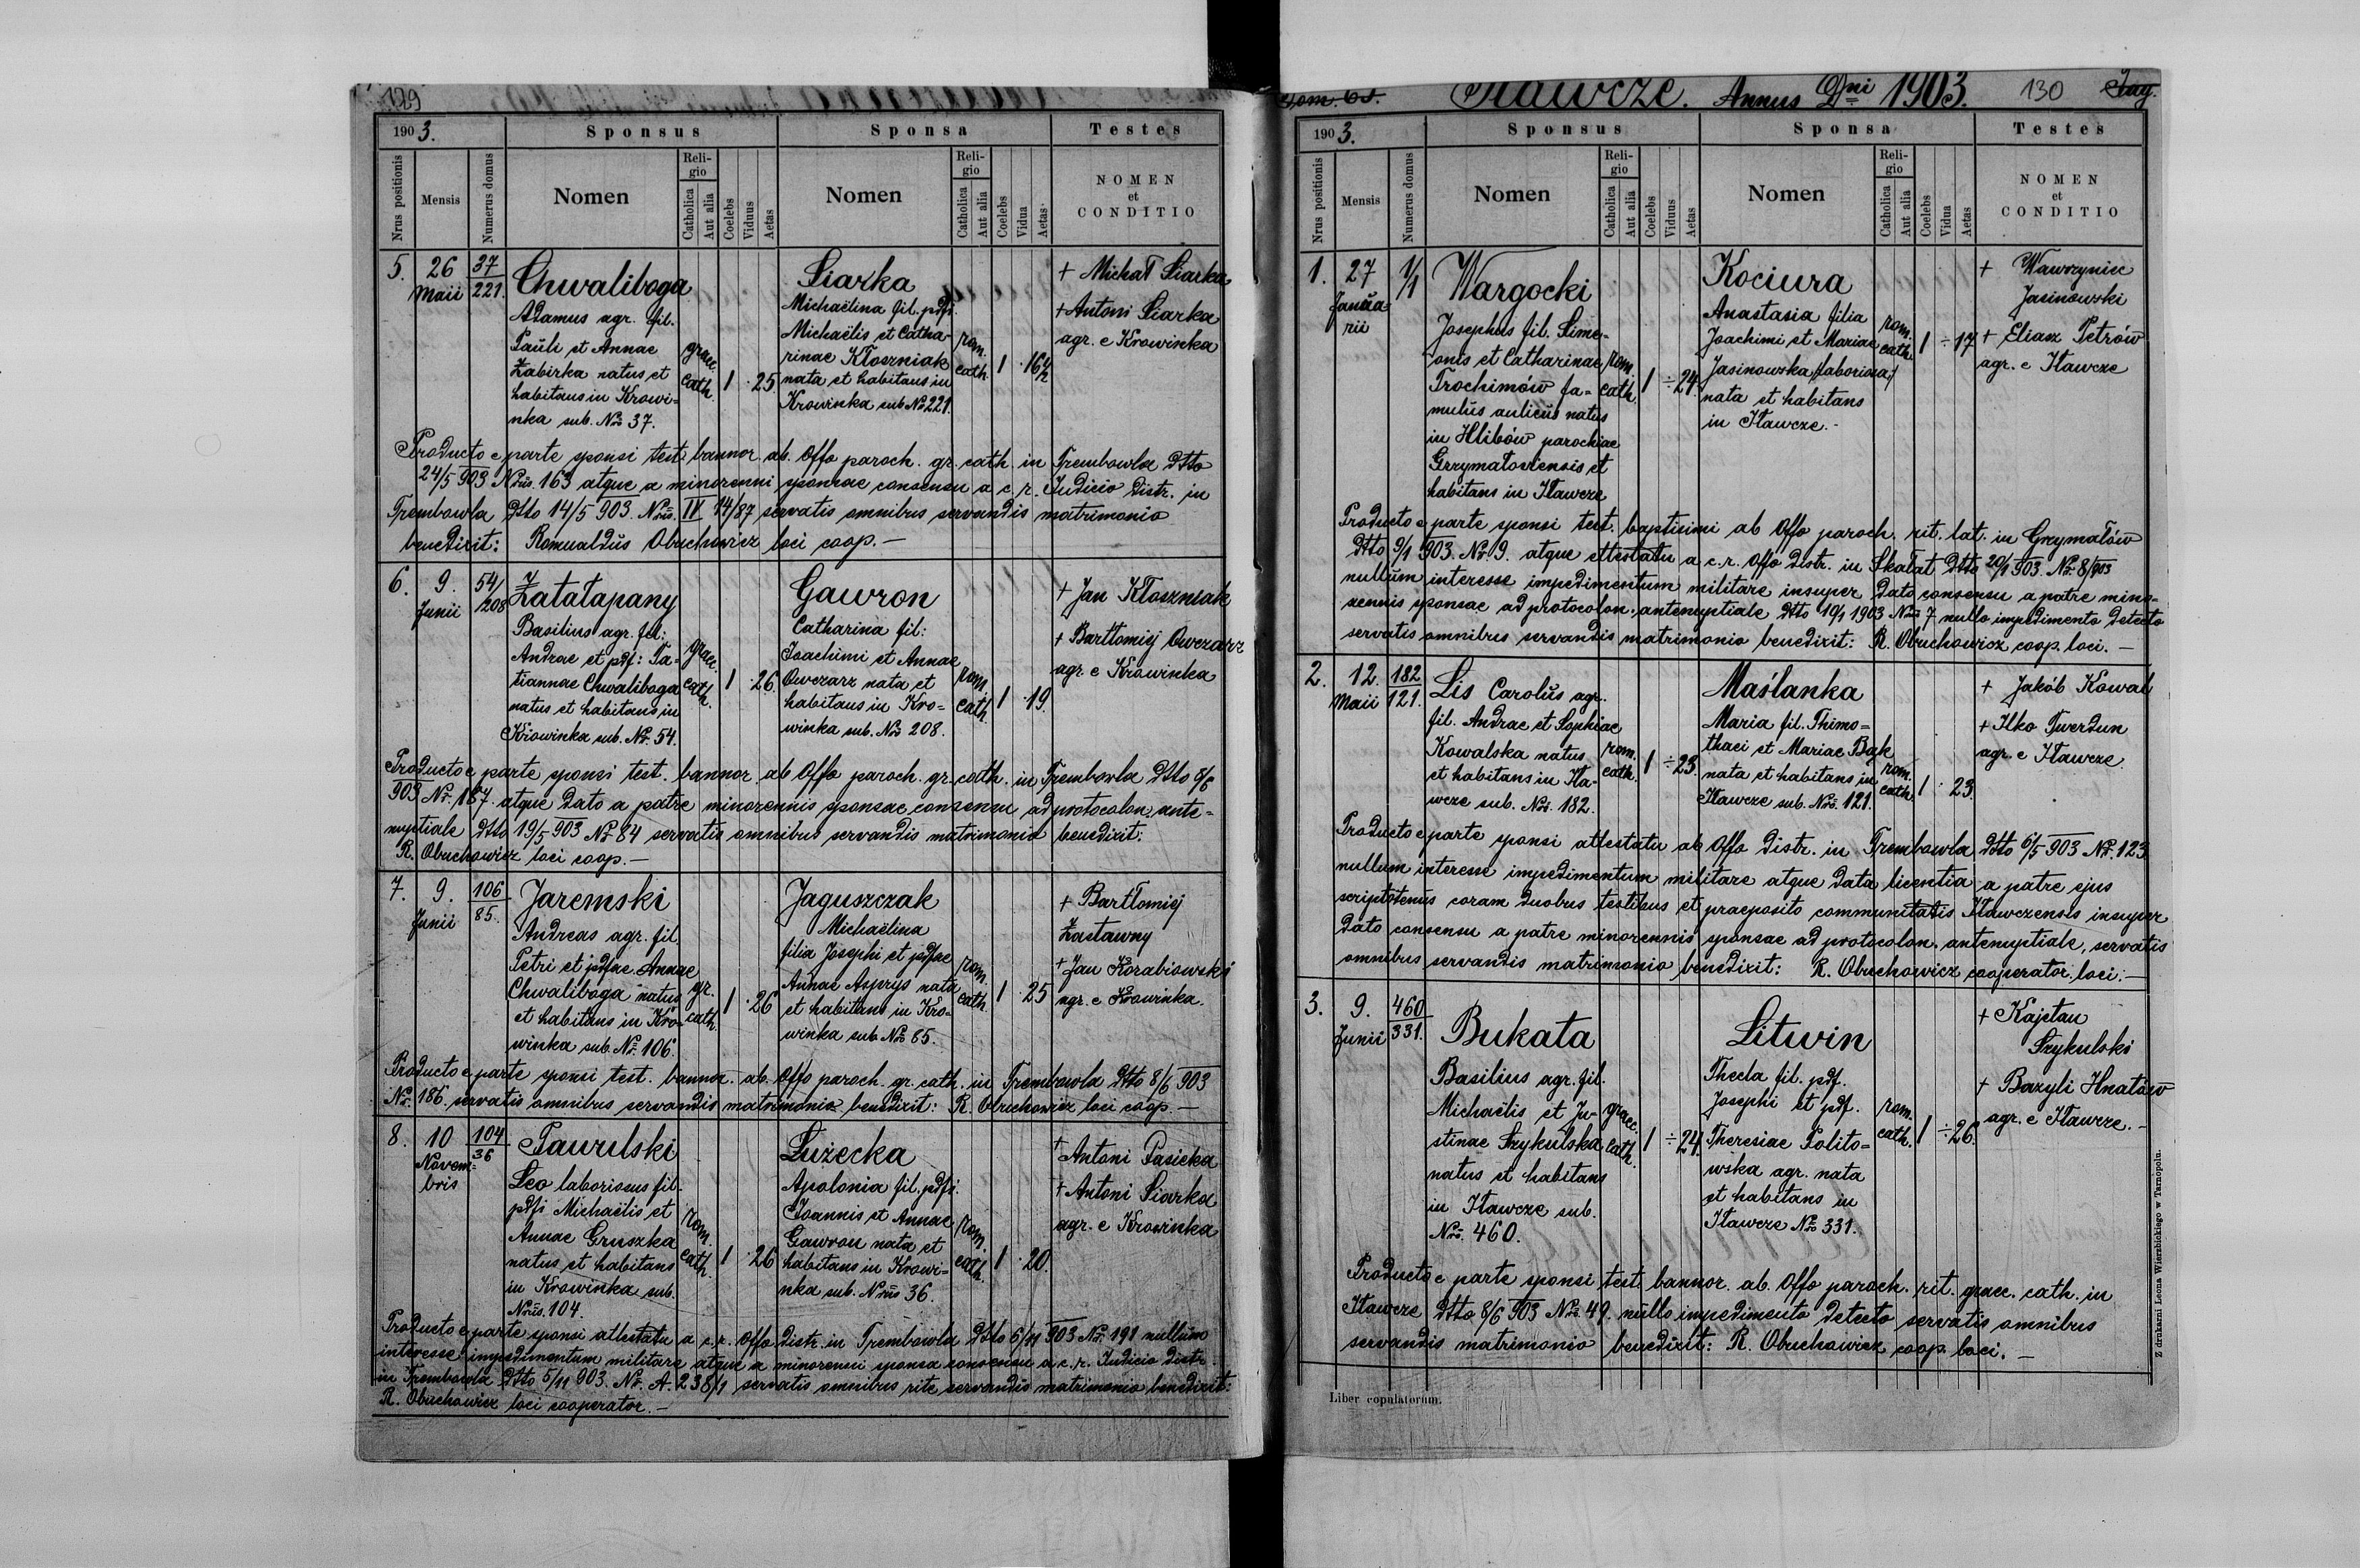 129
190 3.
Sponsus
Sponsa
Testes
Nrus positionis
Mensis
Numerus domus
Nomen
Religio
Catholica
Aut alia
Coelebs
Viduus
Aetas
Nomen
Religio
Catholica
Aut alia
Coelebs
Vidua
Aetas
NOMEN
et
CONDITIO
5.
26
Maii
37
221.
Chwaliboga
Adamus agr. fil.
Pauli et Annae
Zabirka natus et
habitans in Krowi-
nka sub. Nro 37.
graec.
cath.
1
25
Siarka
Michaëlina fil. pdfi.
Michaëlis et Catha-
rinae Kłoszniak
nata et habitans in
Krowinka sub Nro 221.
rom.
cath.
1
16 1/2
+ Michał Siarka
+ Antoni Siarka
agr. e Krowinka
Producto e parte sponsi test. bannor. ab. Offo paroch. gr. cath. in Trembowla dtto
24/5 903 Nrus. 163 atque a minorenni sponsae consensu a c. r. Judicio distr. in
Trembowla dtto 14/5 903. Nrus. IV 14/87 servatis omnibus servandis matrimonio
benedixit: Romualdus Obuchowicz loci coop. —
6.
9.
Junii
54/
/208
Zatałapany
Basilius agr. fil:
Andrae et pdf: Ta-
tiannae Chwaliboga
natus et habitans in
Krowinka sub. Nr. 54.
graec.
cath.
1
26.
Gawron
Catharina fil:
Joachimi et Annae
Owczarz nata et
habitans in Kro-
winka sub. Nro 208.
rom.
cath.
1
19.
+ Jan Kłoszniak
+ Bartłomiej Owczarz
agr. e Krowinka
Producto e parte sponsi test. bannor. ab Offo paroch. gr. cath. in Trembowla dtto 8/6
903 Nr. 187. atque dato a patre minorennis sponsae consensu ad protocolon. ante-
nuptiale dtto 19/5 903 Nr. 84 servatis omnibus servandis matrimonio benedixit:
R. Obuchowicz loci coop. —
7.
9.
Junii
106
85.
Jaremski
Andreas agr. fil.
Petri et pdfae Annae
Chwaliboga natus
et habitans in Kro-
winka sub. Nr. 106.
gr.
cath.
1
26
Jaguszczak
Michaëlina
filia Josephi et pdfae
Annae Asprys nata
et habitans in Kro-
winka sub Nro 85.
rom.
cath.
1
25
+ Bartłomiej
Zastawny
+ Jan Korabiowski
agr. e Krowinka.
Producto e parte sponsi test. bannor. ab. Offo paroch. gr. cath. in Trembowla dtto 8/6 903
Nr. 186. servatis omnibus servandis matrimonio benedixit: R. Obuchowicz loci coop. —
8.
10
Novem-
bris
104
36
Tawrulski
Leo laboriosus fil.
pdfi Michaëlis et
Annae Gruszka
natus et habitans
in Krowinka sub.
Nrus. 104.
rom.
cath.
1
26
Łużecka
Apolonia fil. pdfi.
Joannis et Annae
Gawron nata et
habitans in Krowi-
nka sub. Nrus 36.
rom.
cath.
1
20.
+ Antoni Pasieka
+ Antoni Siarka
agr. e Krowinka
Producto e parte sponsi attestatu a c. r. Offo distr. in Trembowla dtto 6/11 903 Nr. 191 nullum
interesse impedimentum militare atque a minorenni sponsa consensu a c. r. Judicio distr.
in Trembowla dtto 5/11 903. Nr. A. 238/1 servatis omnibus rite servandis matrimonio benedixit:
R. Obuchowicz loci cooperator. —
Iławcze. Annus Dni 1903.
130
Pag.
190 3.
Sponsus
Sponsa
Testes
Nrus positionis
Mensis
Numerus domus
Nomen
Religio
Catholica
Aut alia
Coelebs
Viduus
Aetas
Nomen
Religio
Catholica
Aut alia
Coelebs
Vidua
Aetas
NOMEN
et
CONDITIO
1.
27
Janua-
rii
1/1
Wargocki
Josephus fil. Sime-
onis et Catharinae
Trochimów fa-
mulus aulicus natus
in Hlibów parochiae
Grzymałoviensis et
habitans in Iławcze
rom.
cath.
1
÷ 24.
Kociura
Anastasia filia
Joachimi et Mariae
Jasinowska (laboriosa)
nata et habitans
in Iławcze. -
rom.
cath.
1
÷ 17
+ Wawrzyniec
Jasinowski
+ Eliasz Petrów
agr. e Iławcze
Producto e parte sponsi test. baptismi ab Offo paroch. rit. lat. in Grzymałów
dtto 9/1 903. Nr. 9. atque attestatu a c. r. Offo distr. in Skałat dtto 20/1 903. Nr. 8/903
nullum interesse impedimentum militare insuper dato consensu a patre mino-
rennis sponsae ad protocolon. antenuptiale dtto 10/1 1903 Nro 7 nullo impedimento detecto
servatis omnibus servandis matrimonio benedixit: R. Obuchowicz coop. loci. —
2.
12.
Maii
182
121.
Lis Carolus agr.
fil. Andrae et Sophiae
Kowalska natus
et habitans in Iła-
wcze sub. Nro. 182.
rom.
cath.
1
÷ 23.
Maślanka
Maria fil. Thimo-
thaei et Mariae Bąk
nata et habitans in
Iławcze sub. Nro. 121.
rom.
cath.
1
23.
+ Jakób Kowal
+ Ilko Twerdun
agr. e Iławcze.
Producto e parte sponsi attestatu ab Offo distr. in Trembowla dtto 6/5 903 Nr. 123
nullum interesse impedimentum militare atque data licentia a patre ejus
scriptotenus coram duobus testibus et praeposito communitatis Iławczensis insuper
dato consensu a patre minorennis sponsae ad protocolon. antenuptiale, servatis
omnibus servandis matrimonio benedixit: R. Obuchowicz cooperator loci. —
3.
9.
Junii
460
331.
Bukata
Basilius agr. fil.
Michaëlis et Ju-
stinae Szykulska
natus et habitans
in Iławcze sub.
Nro. 460.
graec.
cath.
1
÷ 24.
Litwin
Thecla fil. pdf.
Josephi et pdf.
Theresiae Polito-
wska agr. nata
et habitans in
Iławcze Nro 331.
rom.
cath.
1
÷ 26.
+ Kajetan
Szykulski
+ Bazyli Hnatów
agr. e Iławcze. -
Producto e parte sponsi test. bannor. ab. Offo paroch. rit. graec. cath. in
Iławcze dtto 8/6 903 Nro 49. nullo impedimento detecto servatis omnibus
servandis matrimonio benedixit: R. Obuchowicz coop. loci. —
Liber copulatorum.
Z drukarni Leona Wierzbickiego w Tarnopolu.